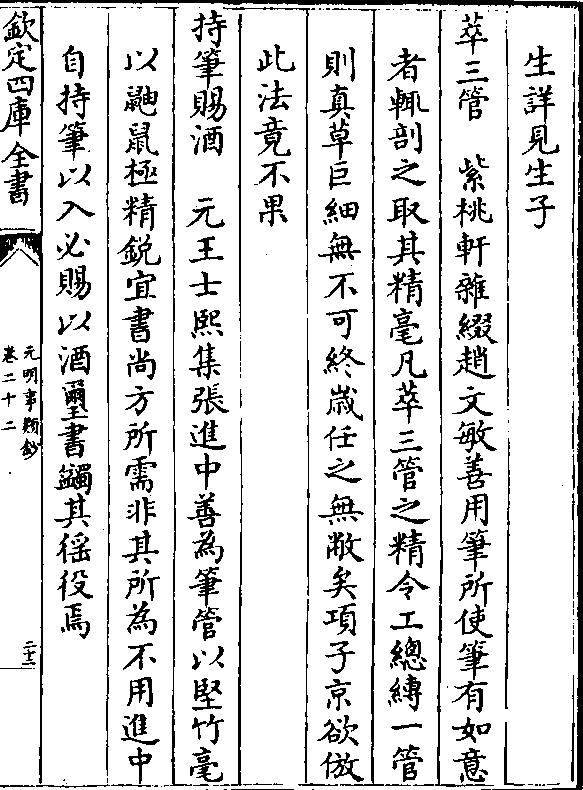 生詳見生子
萃三管　紫桃軒雜綴趙文敏善用筆所使筆有如意
者輒剖之取其精毫凡萃三管之精令工總縛一管
則真草巨細無不可終歲任之無敝矣項子京欲倣
此法竟不果
持筆賜酒　元王士熙集張進中善為筆管以堅竹毫
以鼬鼠極精鋭宜書尚方所需非其所為不用進中
自持筆以入必賜以酒璽書蠲其徭役焉
欽定四庫全書
元明事類鈔
卷二十二
二十三